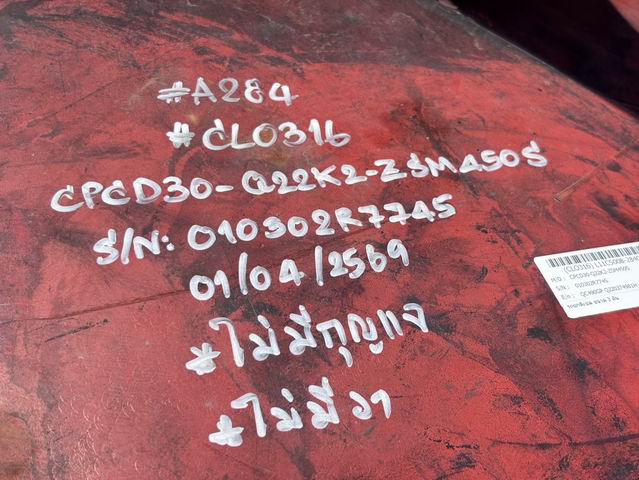 #A284
#CLO316
CPCD30-Q22K2-ZSM450S
S/N: 010302R7745
01/04/2569
*ไม่มีกุญแจ
*ไม่มีงา
(CLO316) L11C5008-2840
M/D : CPCD30-Q22K2-ZSM450S
S/N : 010302R7745
E/n :